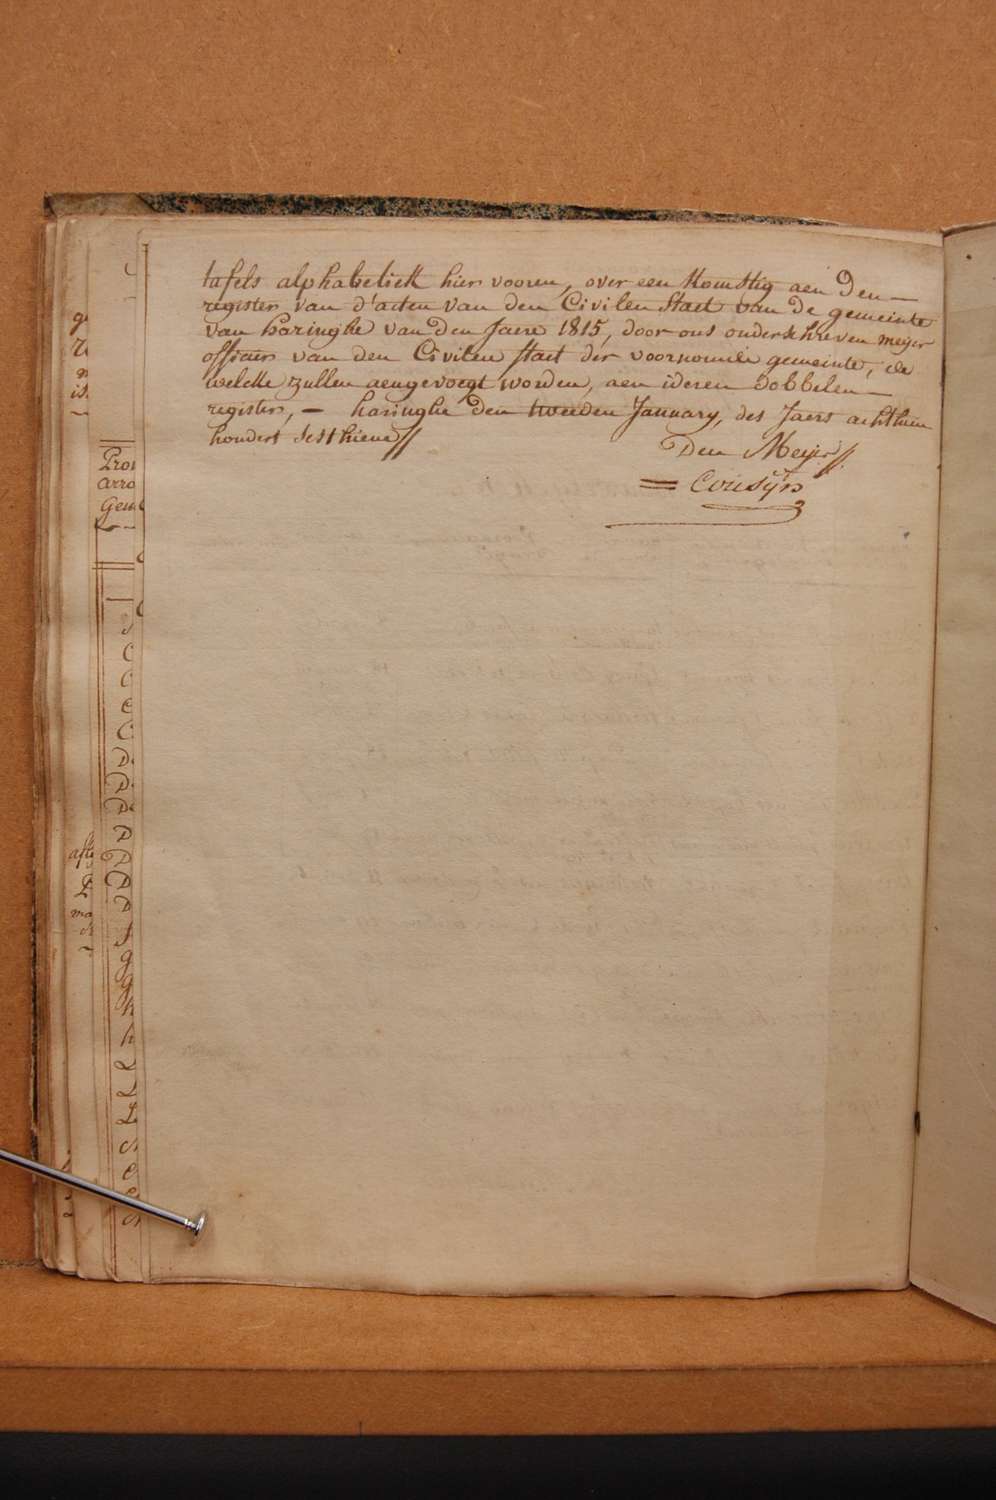 tafels alphabetiek hier vooren, over een komstig aen den —
register van d'acten van den Civilen Staet van de gemeinte
van haringhe van den Jaere 1815, door ons onderschreven meyer
officier van den Civilen staet der voornoemde gemeinte, de
welcke zullen aengevoegt worden, aen ideren dobbelen —
register, — haringhe den tweeden January, des Jaers achthien
hondert sesthiene //
Den Meyer //.
= Cousyn
Pro
arro
Gem